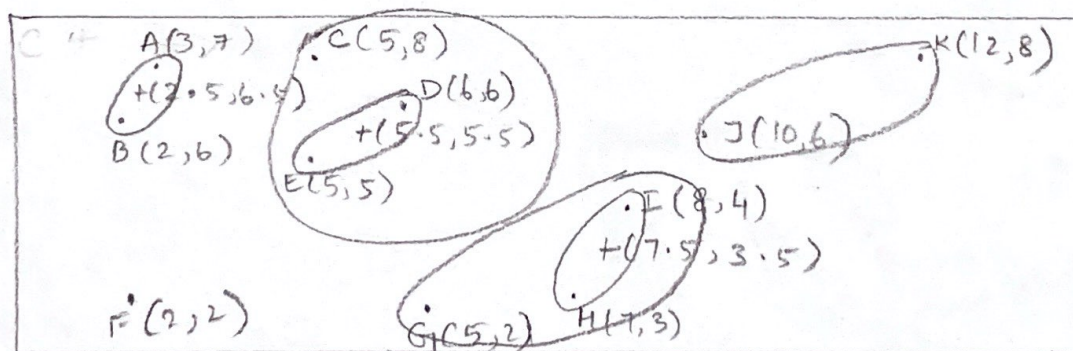 A(3,7)
C(5,8)
K(12,8)
+(2.5,6.5)
D(6,6)
+(5.5,5.5)
J(10,6)
B(2,6)
E(5,5)
I(8,4)
+(7.5,3.5)
F(2,2)
G(5,2)
H(7,3)